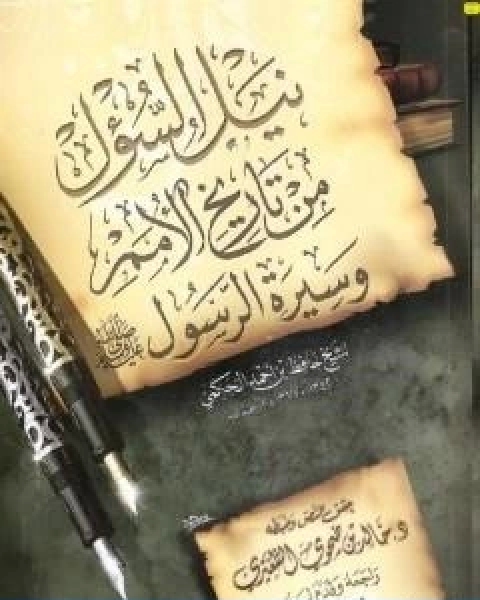 نَيْلُ السُّؤْلِ
مِنْ تَارِيخِ الأُمَمِ
وَسِيرَةِ الرَّسُول ﷺ
للشيخ حافظ بن أحمد الحكمي
حقق النص وضبطه
د. خالد بن
راجعه وقدم له